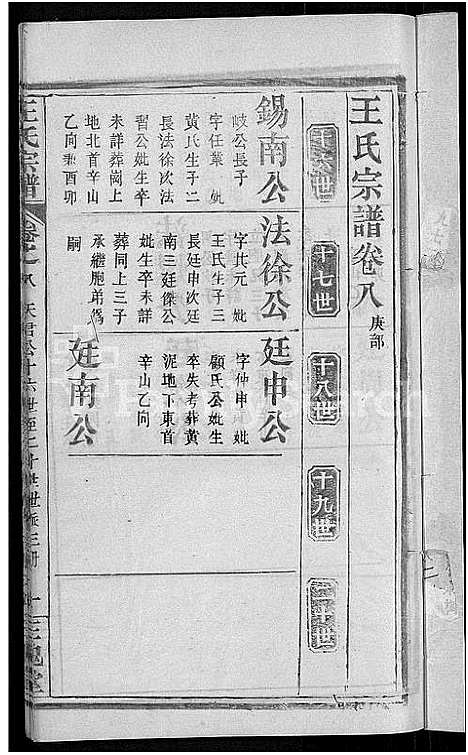 王氏宗譜卷八 庚部
十六世
十七世
十八世
十九世
二十世
錫南公
岐公長子
字任業 妣
黃氏生子二
長法徐次法
習公妣生卒
未詳葬崗上
地北首辛山
乙向兼酉卯
法徐公
字其元 妣
王氏生子三
長廷申次廷
南三廷傑公
妣生卒未詳
葬同上三子
承繼胞弟為
嗣
廷申公
字仲申 妣
顧氏公妣生
卒失考葬黄
泥地下東首
辛山乙向
廷南公
王氏宗譜
卷八 天君公十六世至二十世世派三册
一
三槐堂